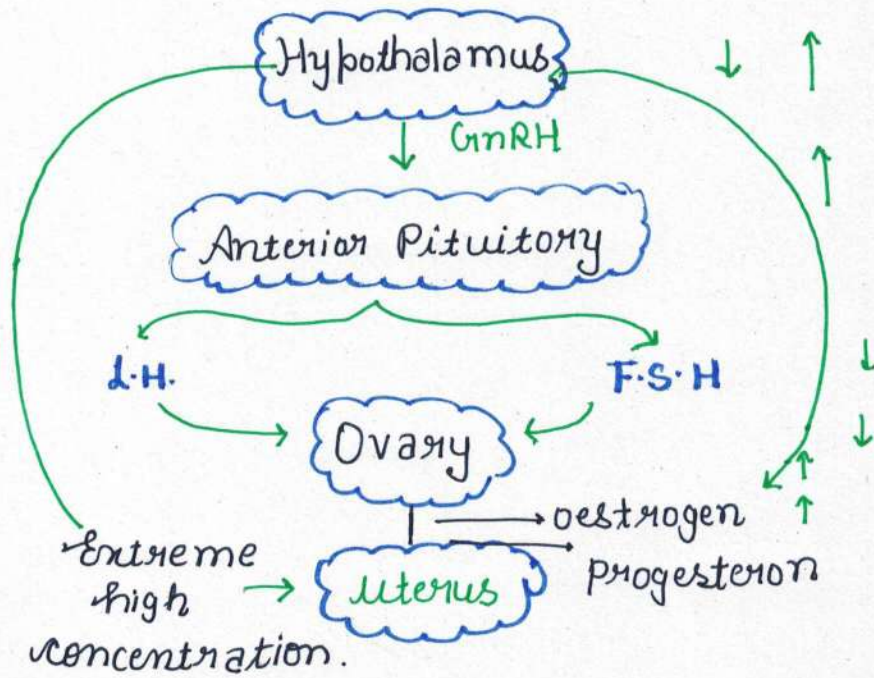 Hypothalamus
GnRH
Anterior Pituitory
L.H.
F.S.H
Ovary
oestrogen
progesteron
Uterus
Extreme
high
concentration.